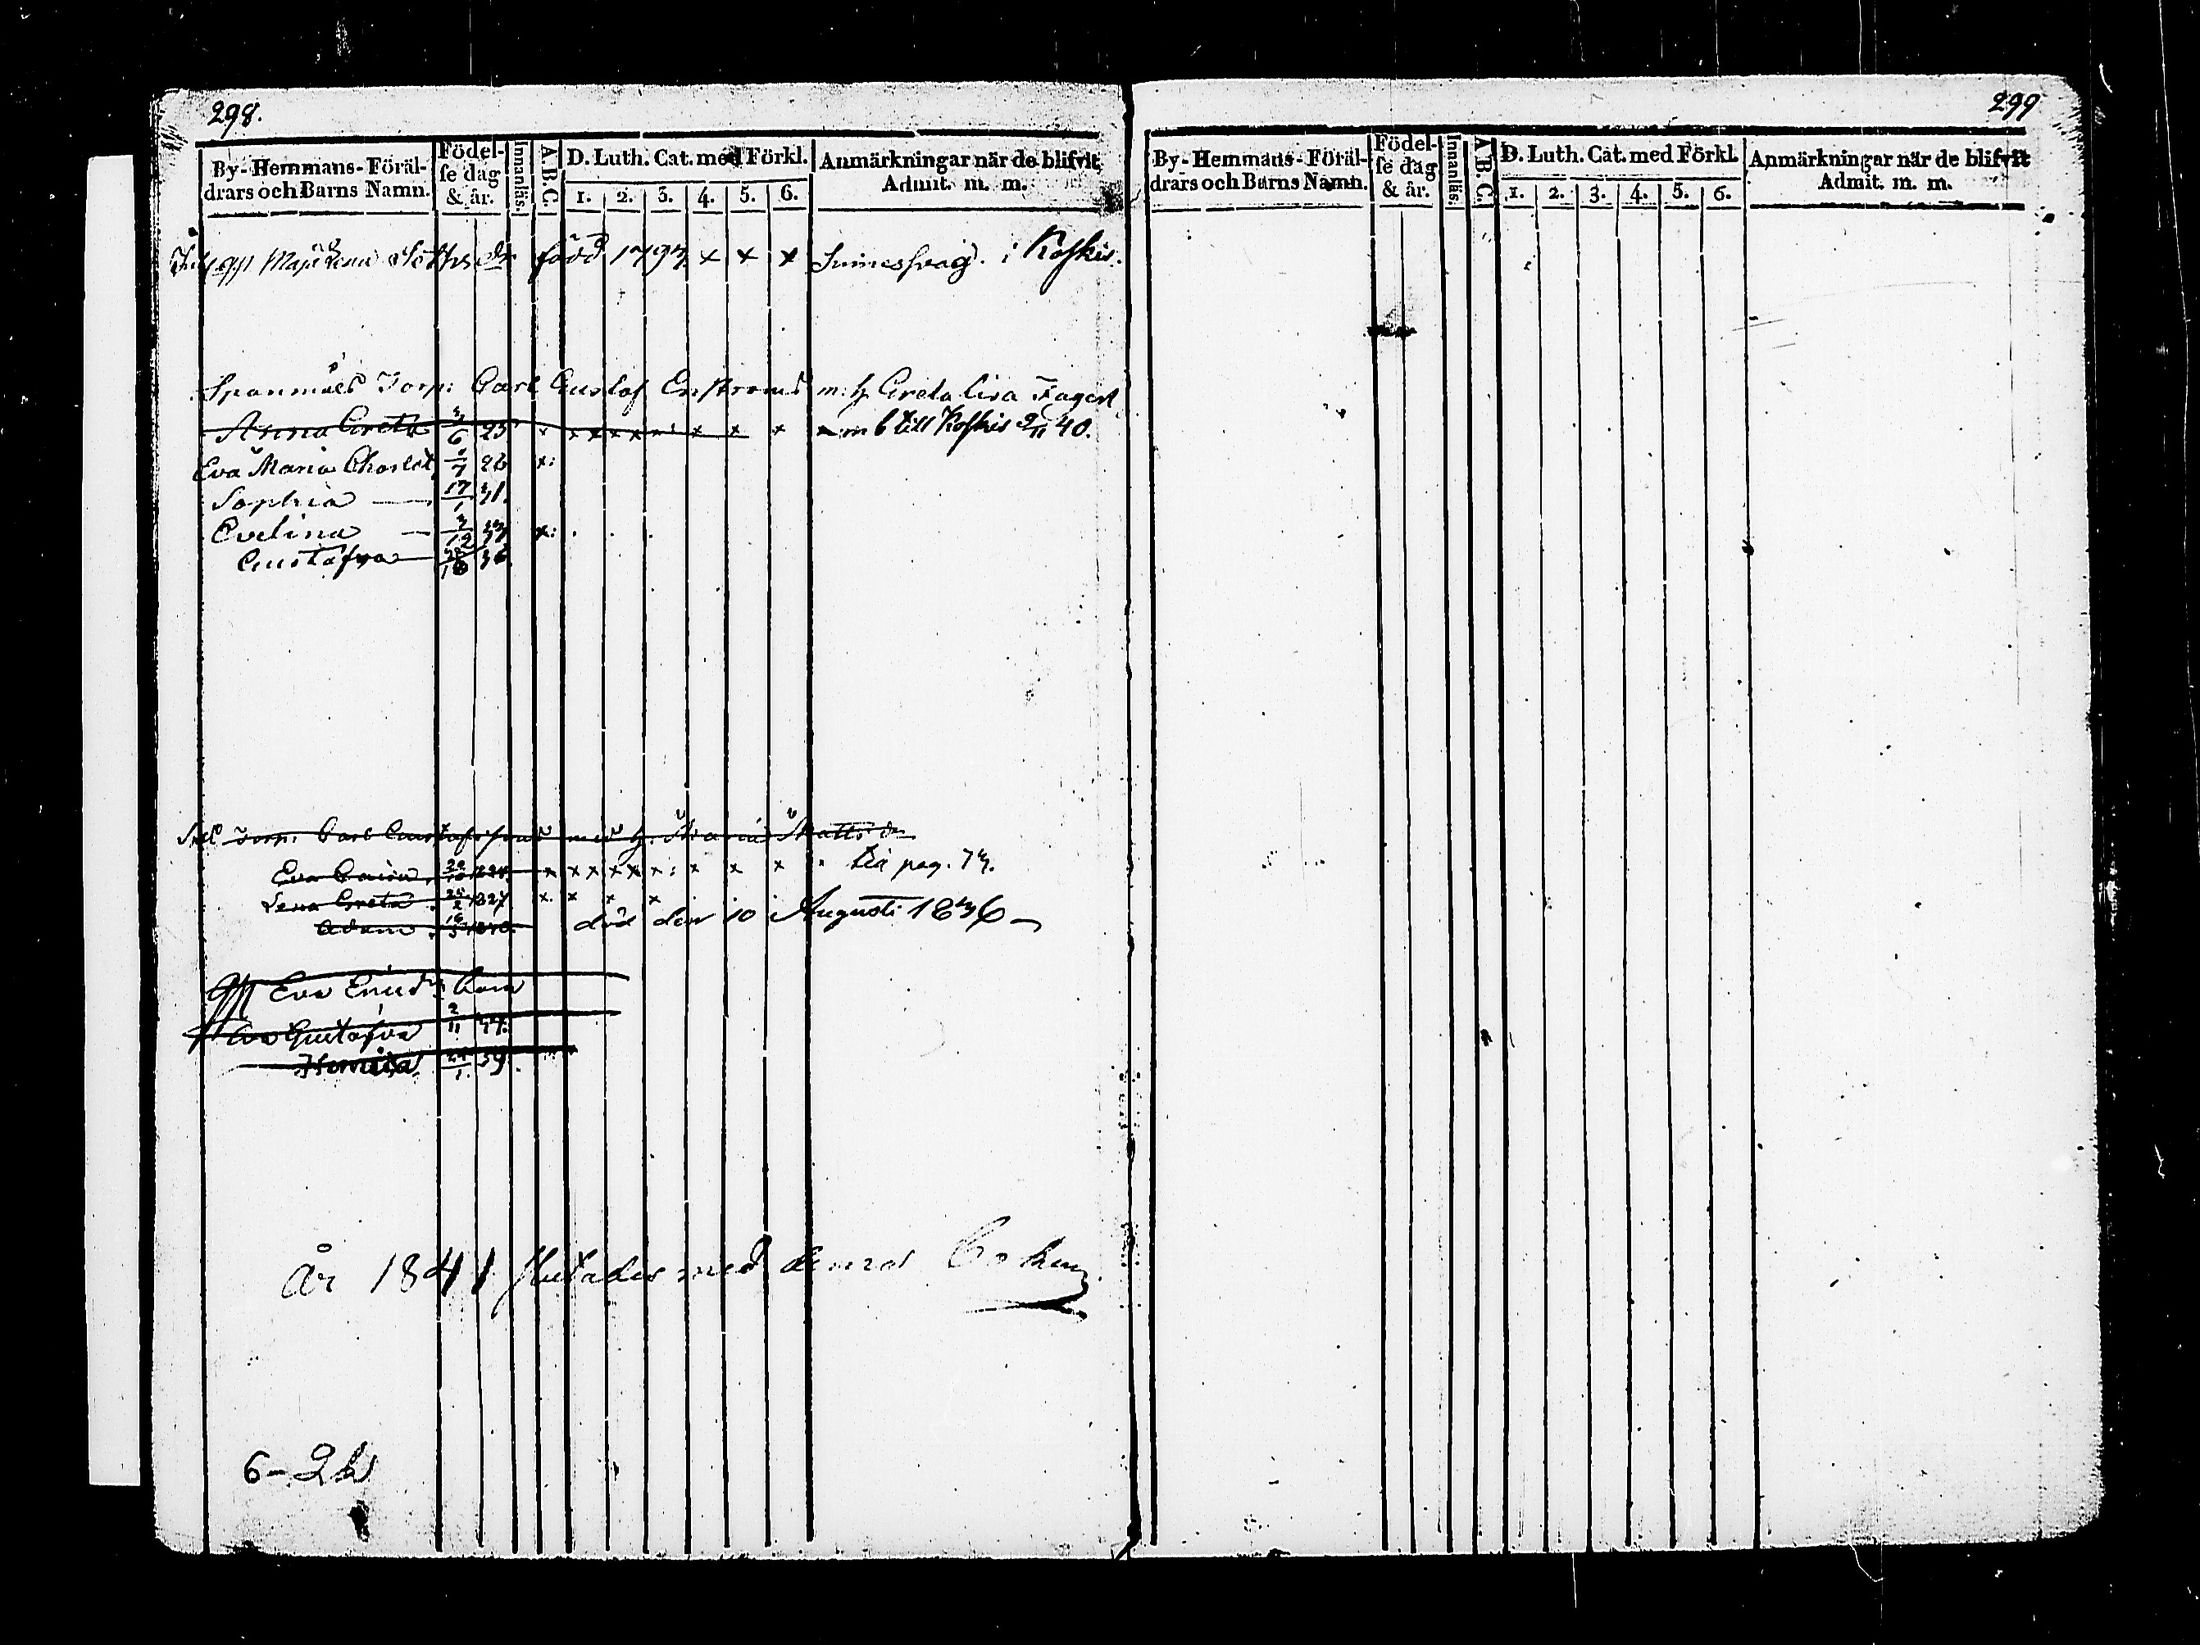 298.
By-Hemmans-Föräl-
drars och Barns Namn.
Födel-
se dag
& år.
Innanläs.
A B C.
D. Luth. Cat. med Förkl.
1. 2. 3. 4. 5. 6.
Anmärkningar när de blifvit
Admit. m. m.
Maja Lena född 1797. x x x Sinnessvag. i Koskis.
Spanmåls Torp: Carl Gustaf Enströms m: h Greta Lisa Fagert
Anna Greta 3/6 25 x x x x x x: x x x m b till Koskis 2/11 40.
Eva Maria Charlot 1/7 28 x:
Sophia — 17/1 31.
Evelina — 3/12 33 x:
Gustafva — 36
Torp: Carl Gustafsson med h. Maria Matts dr
Eva Caisa x x x x x x: x x x tia pag. 73.
Lena Greta 25/2 1827 x. x x x
Adam 16/5 död den 10 Augusti 1836 —
Eva barn
Eva Gustafva 2/11 37.
24/1 39.
År 1841 slutades med denna boken
6 - 2
299
By-Hemmans-Föräl-
drars och Barns Namn.
Födel-
se dag
& år.
Innanläs.
A B C.
D. Luth. Cat. med Förkl.
1. 2. 3. 4. 5. 6.
Anmärkningar när de blifvit
Admit. m. m.